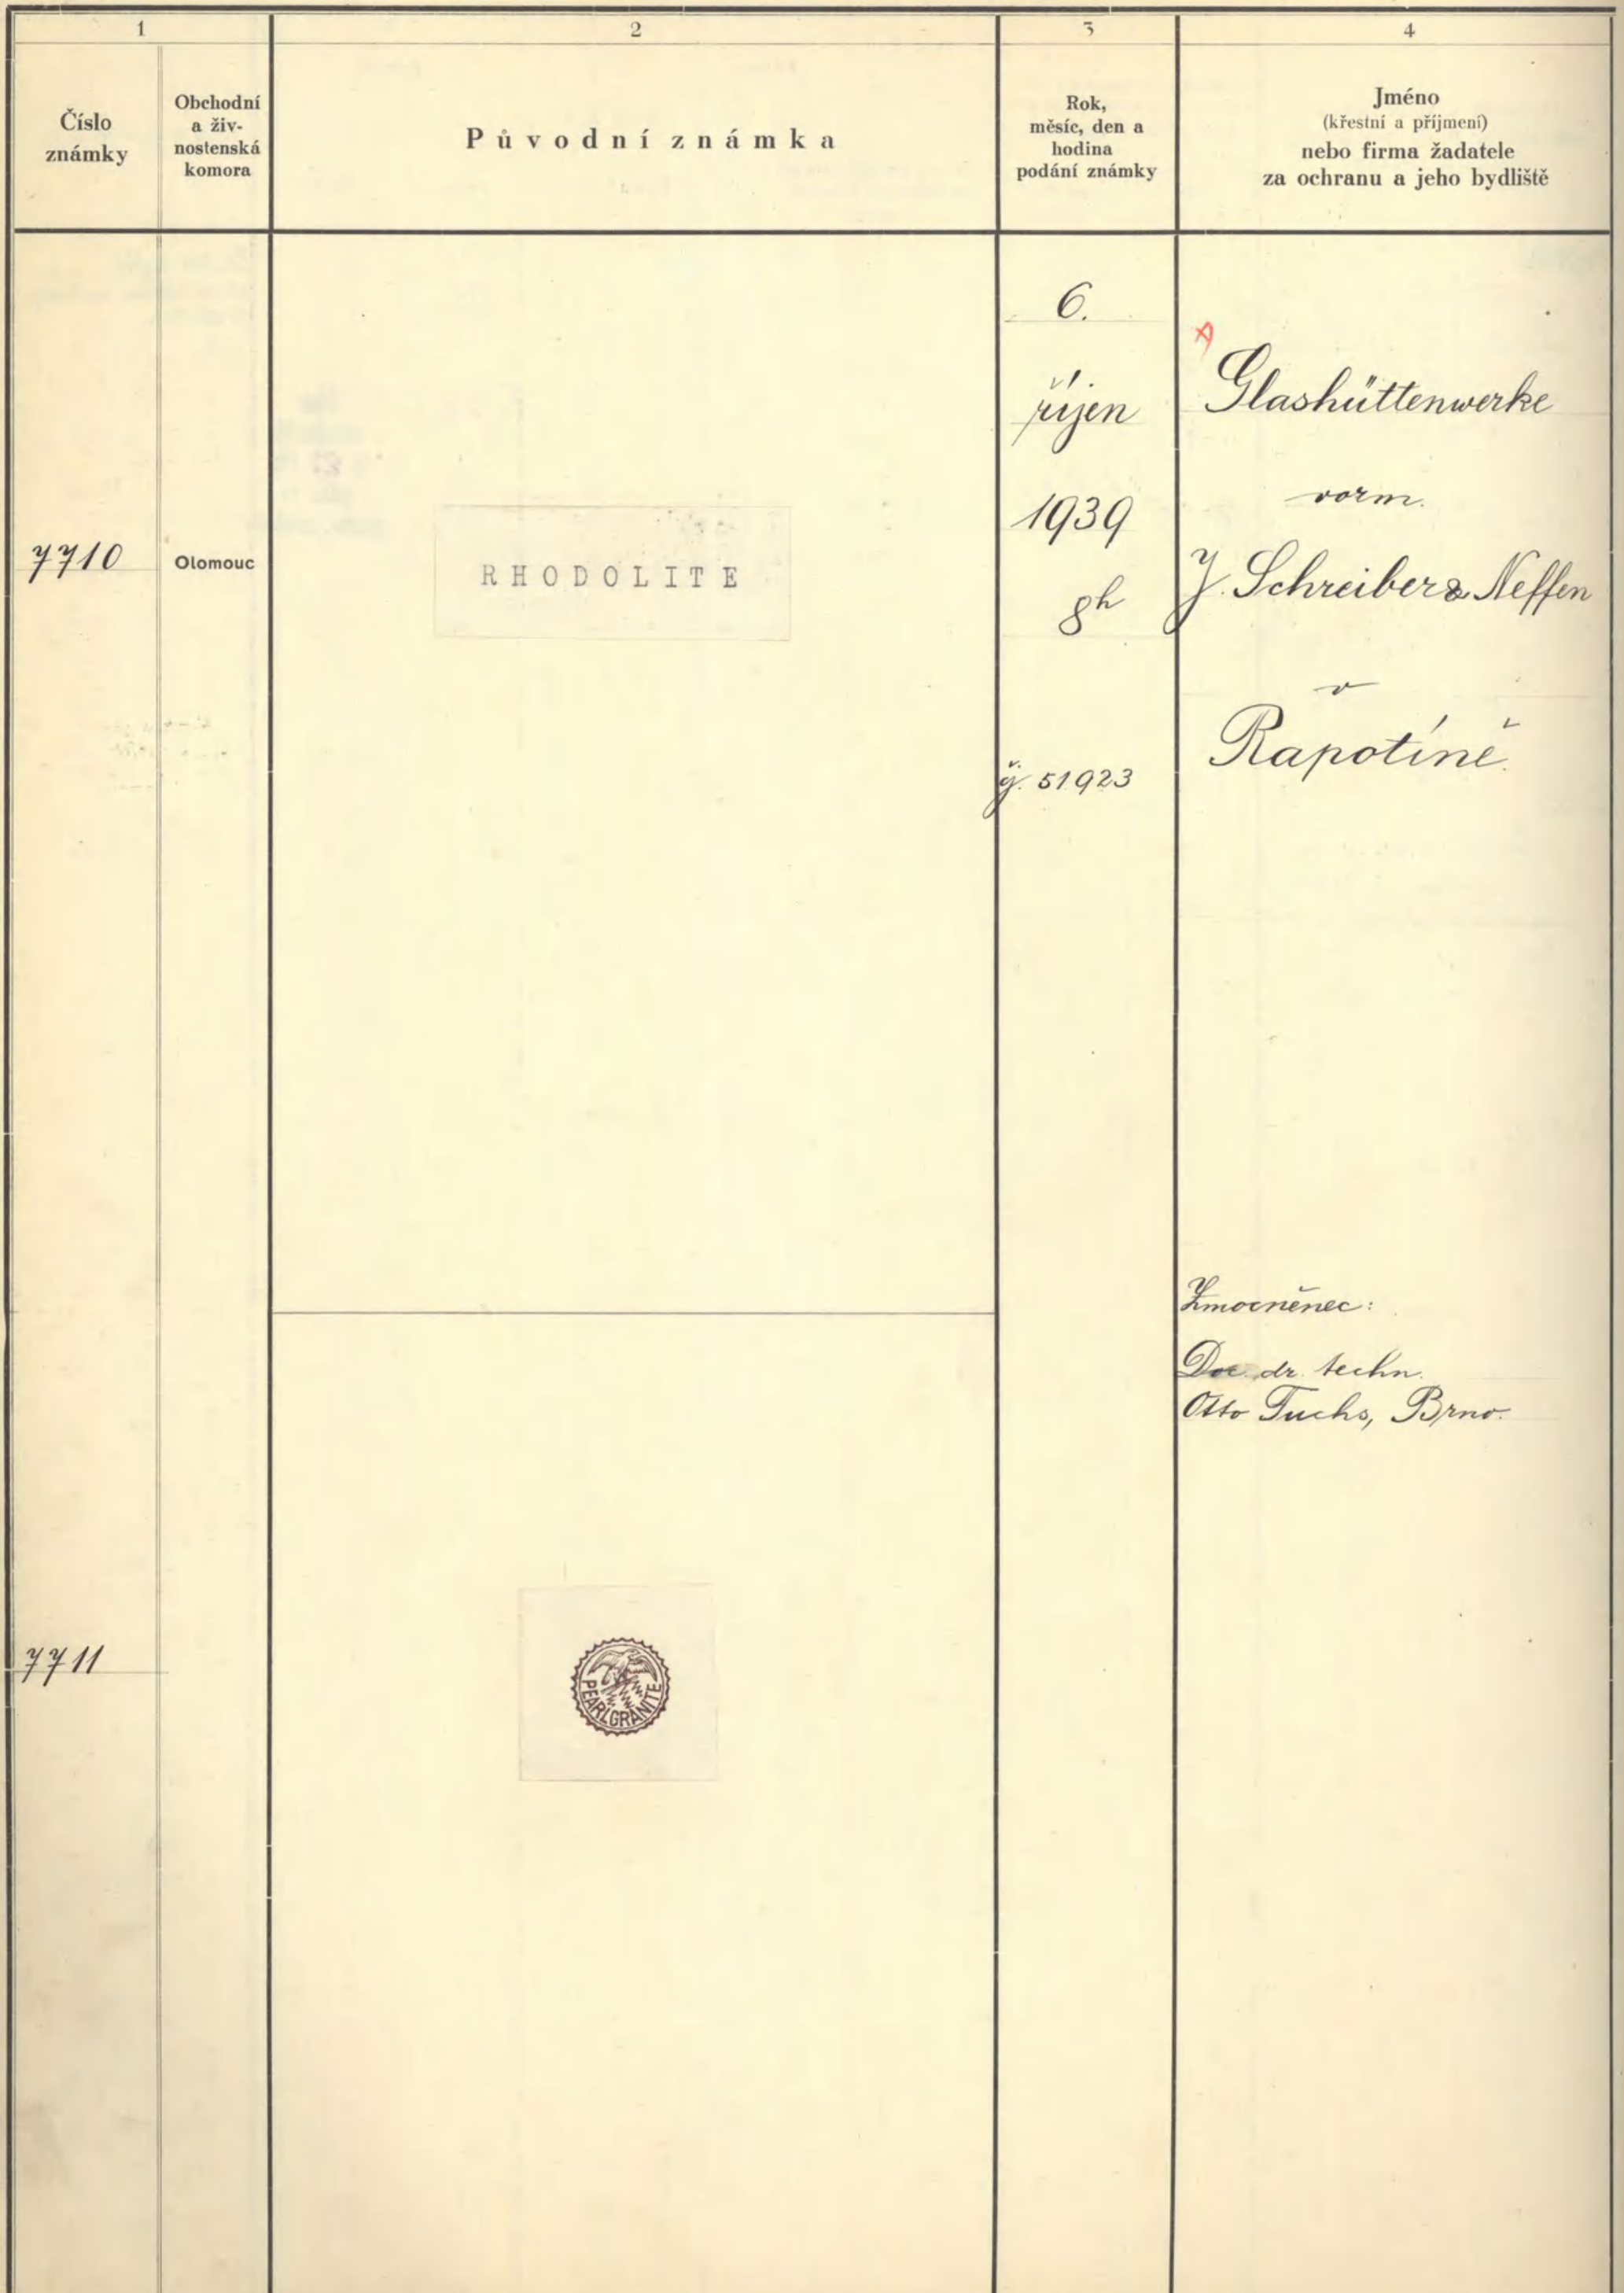 1
2
3
4
Číslo
známky
Obchodní
a živ-
nostenská
komora
Původní známka
Rok,
měsíc, den a
hodina
podání známky
Jméno
(křestní a příjmení)
nebo firma žadatele
za ochranu a jeho bydliště
7710
Olomouc
RHODOLITE
6.
říjen
1939
8h
čj. 51923
Glashüttenwerke
vorm.
J. Schreiber & Neffen
v
Rapotíně.
Zmocněnec:
Doc. dr. techn.
Otto Fuchs, Brno.
7711
PEARLGRANITE